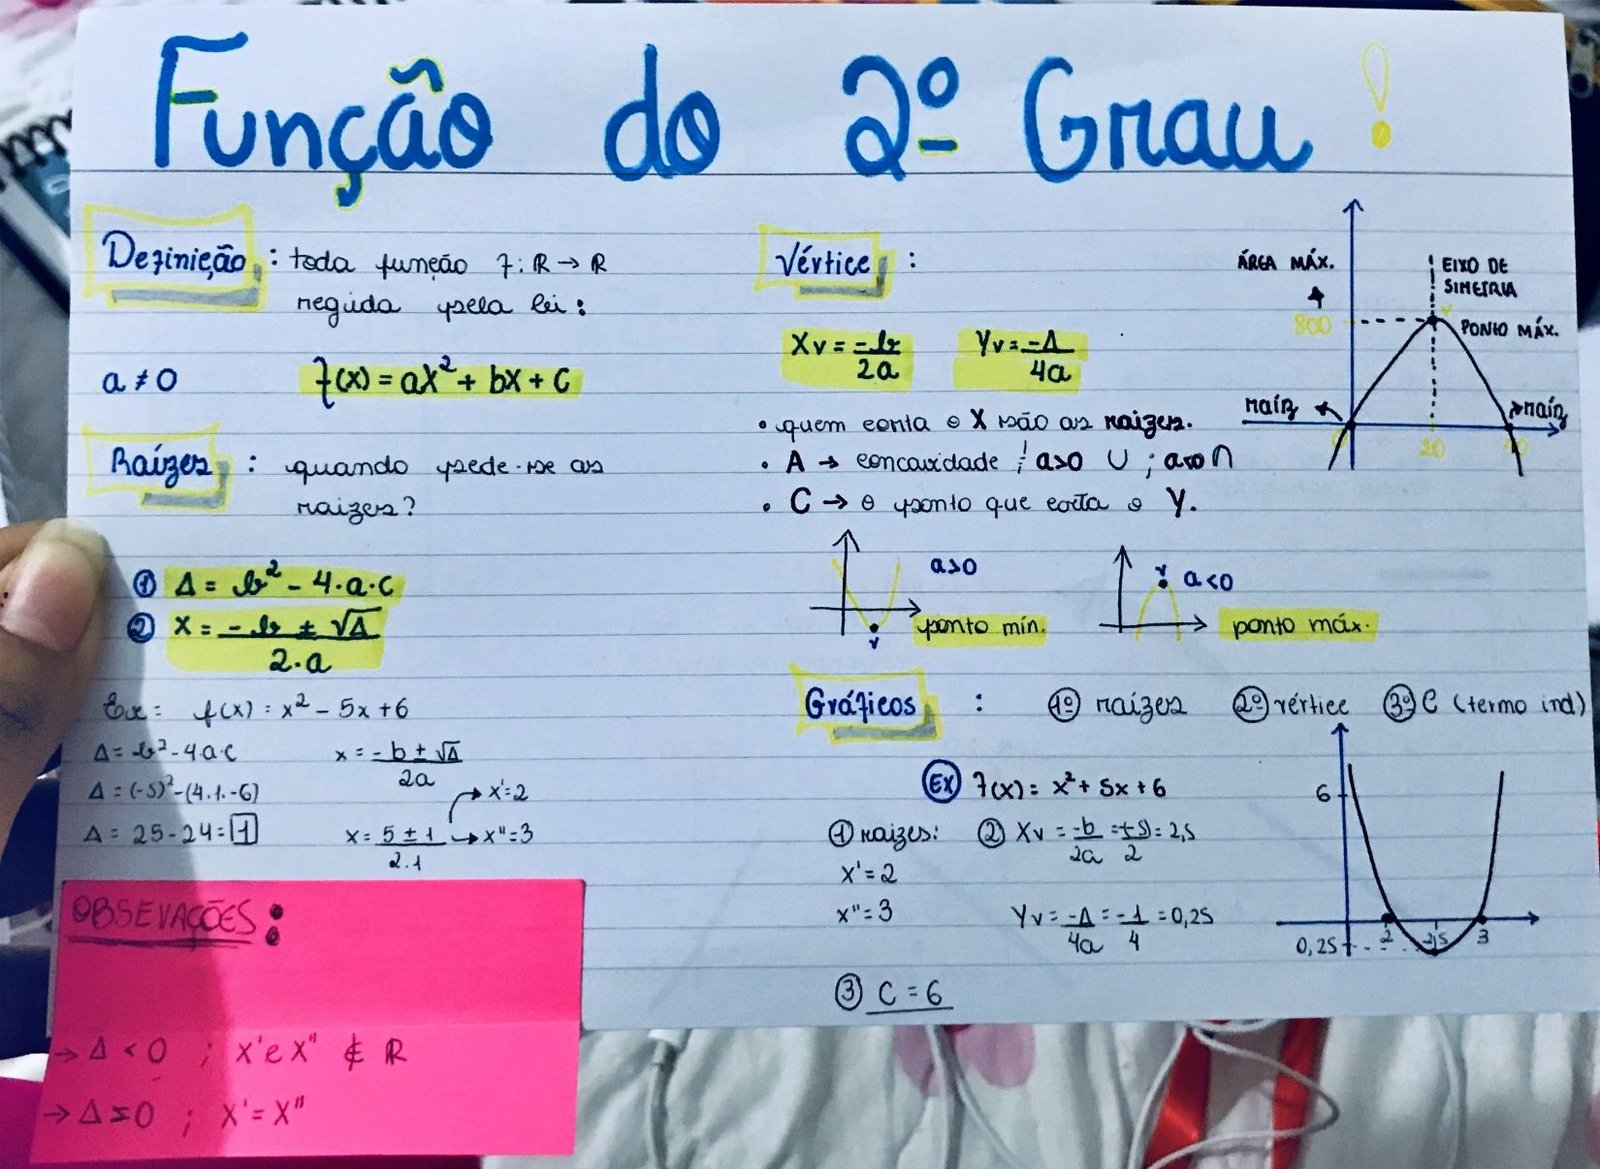 Função do 2º Grau!
Definição: toda função f: R → R
regida pela lei:
a ≠ 0 f(x) = ax² + bx + c
Raízes: quando pede-se as
raizes?
① Δ = b² - 4·a·c
② X = -b ± √Δ / 2·a
Ex: f(x) = x² - 5x + 6
Δ = b² - 4a·c x = -b ± √Δ / 2a
Δ = (-5)² - (4.1.-6) x' = 2
Δ = 25 - 24 = 1 x = 5 ± 1 / 2.1 → x'' = 3
OBSEVAÇÕES:
→ Δ < 0 ; X' e X'' ∉ R
→ Δ = 0 ; X' = X''
Vértice:
Xv = -b / 2a Yv = -Δ / 4a
• quem corta o X são as raizes.
• A → concavidade ! a>0 ∪ ; a<0 ∩
• C → o ponto que corta o Y.
ÁREA MÁX.
800
EIXO DE
SIMETRIA
V
PONTO MÁX.
raíz
raíz
20
a>0
V
ponto mín.
V
a<0
ponto máx.
Gráficos: 1º raizes 2º vértice 3º C (termo ind)
EX f(x) = x² + 5x + 6
① raizes: ② Xv = -b / 2a = +5 / 2 = 2,5
x' = 2
x'' = 3 Yv = -Δ / 4a = -1 / 4 = 0,25
③ C = 6
6
2
2,5
3
0,25